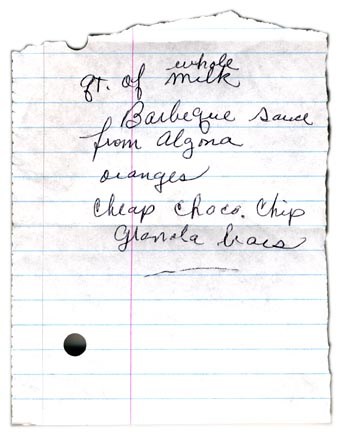 qt. of whole milk
Barbeque sauce
from Algona
oranges
cheap choco. chip
granola bars